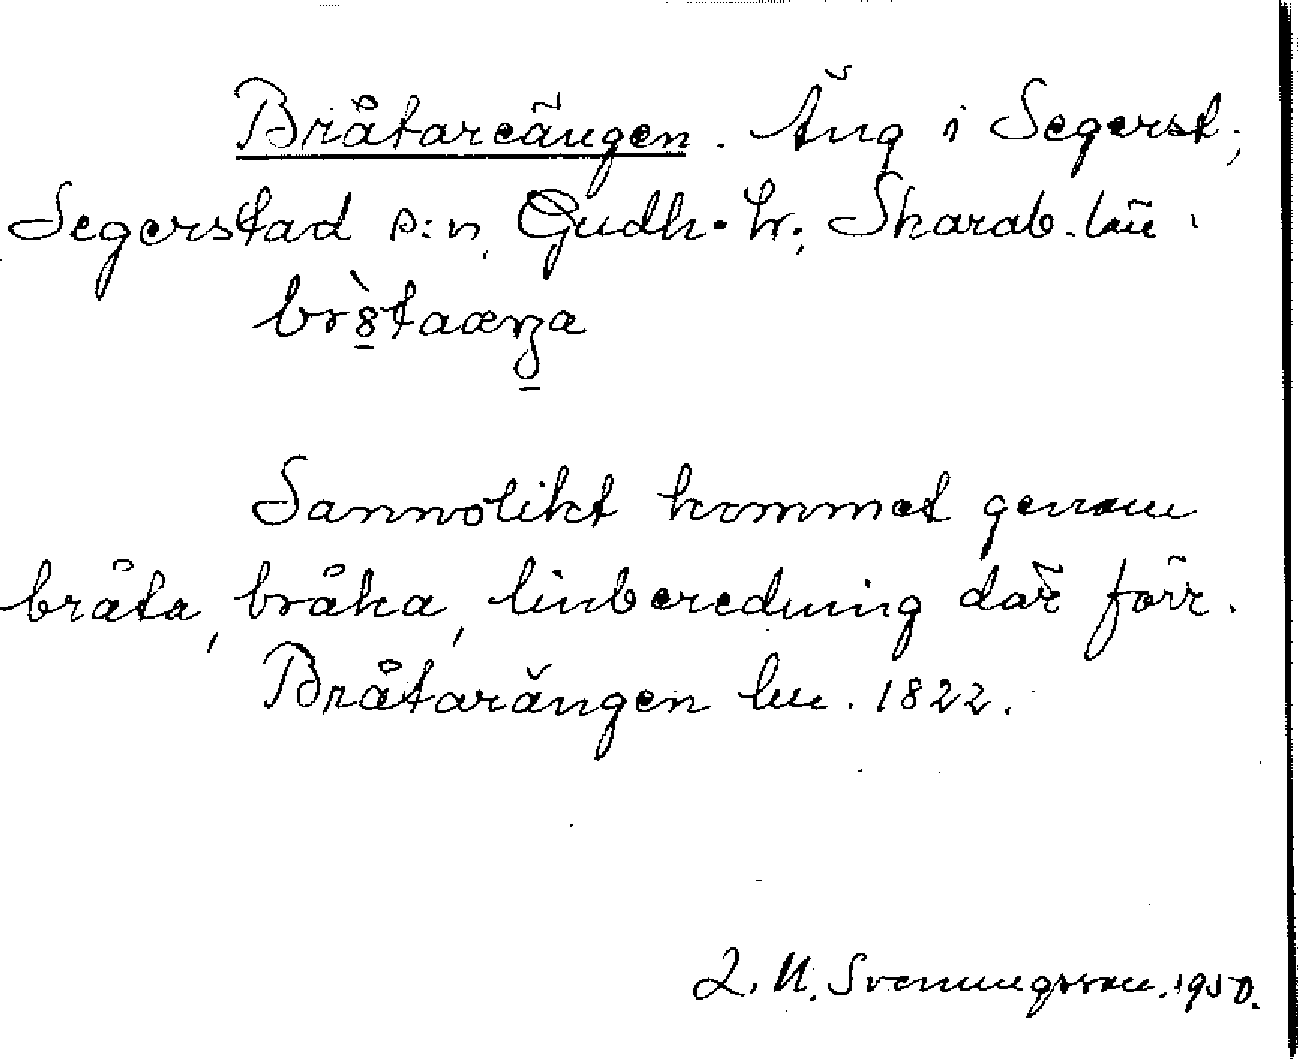 Bråtareängen. Äng i Segerst;
Segerstad s:n, Gudh. hr., Skarab. län.
br8̀taæŋa
Sannolikt kommet genom
bråta, bråka, linberedning där förr.
Bråtarängen lm. 1822.
L. N. Svenungsson. 1950.